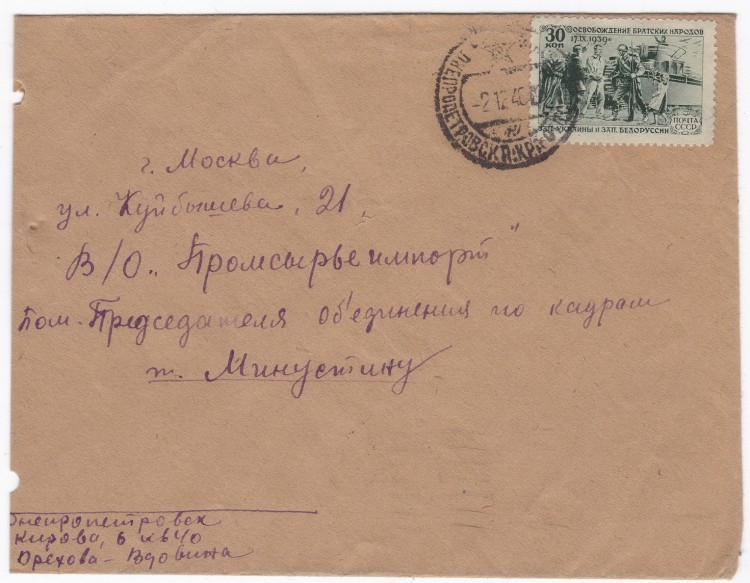 30 КОП
ОСВОБОЖДЕНИЕ БРАТСКИХ НАРОДОВ
17.IX.1939г.
ПОЧТА
СССР
ЗАП. УКРАИНЫ И ЗАП. БЕЛОРУССИИ
ДНЕПРОПЕТРОВСК
-2 12 40
г. Москва,
ул. Куйбышева, 21,
В/О „Промсырьеимпорт"
Пом. Председателя об'единения по кадрам
т. Минустину
Днепропетровск
Кирова, 6 кв 40
Орехова - Вдовина